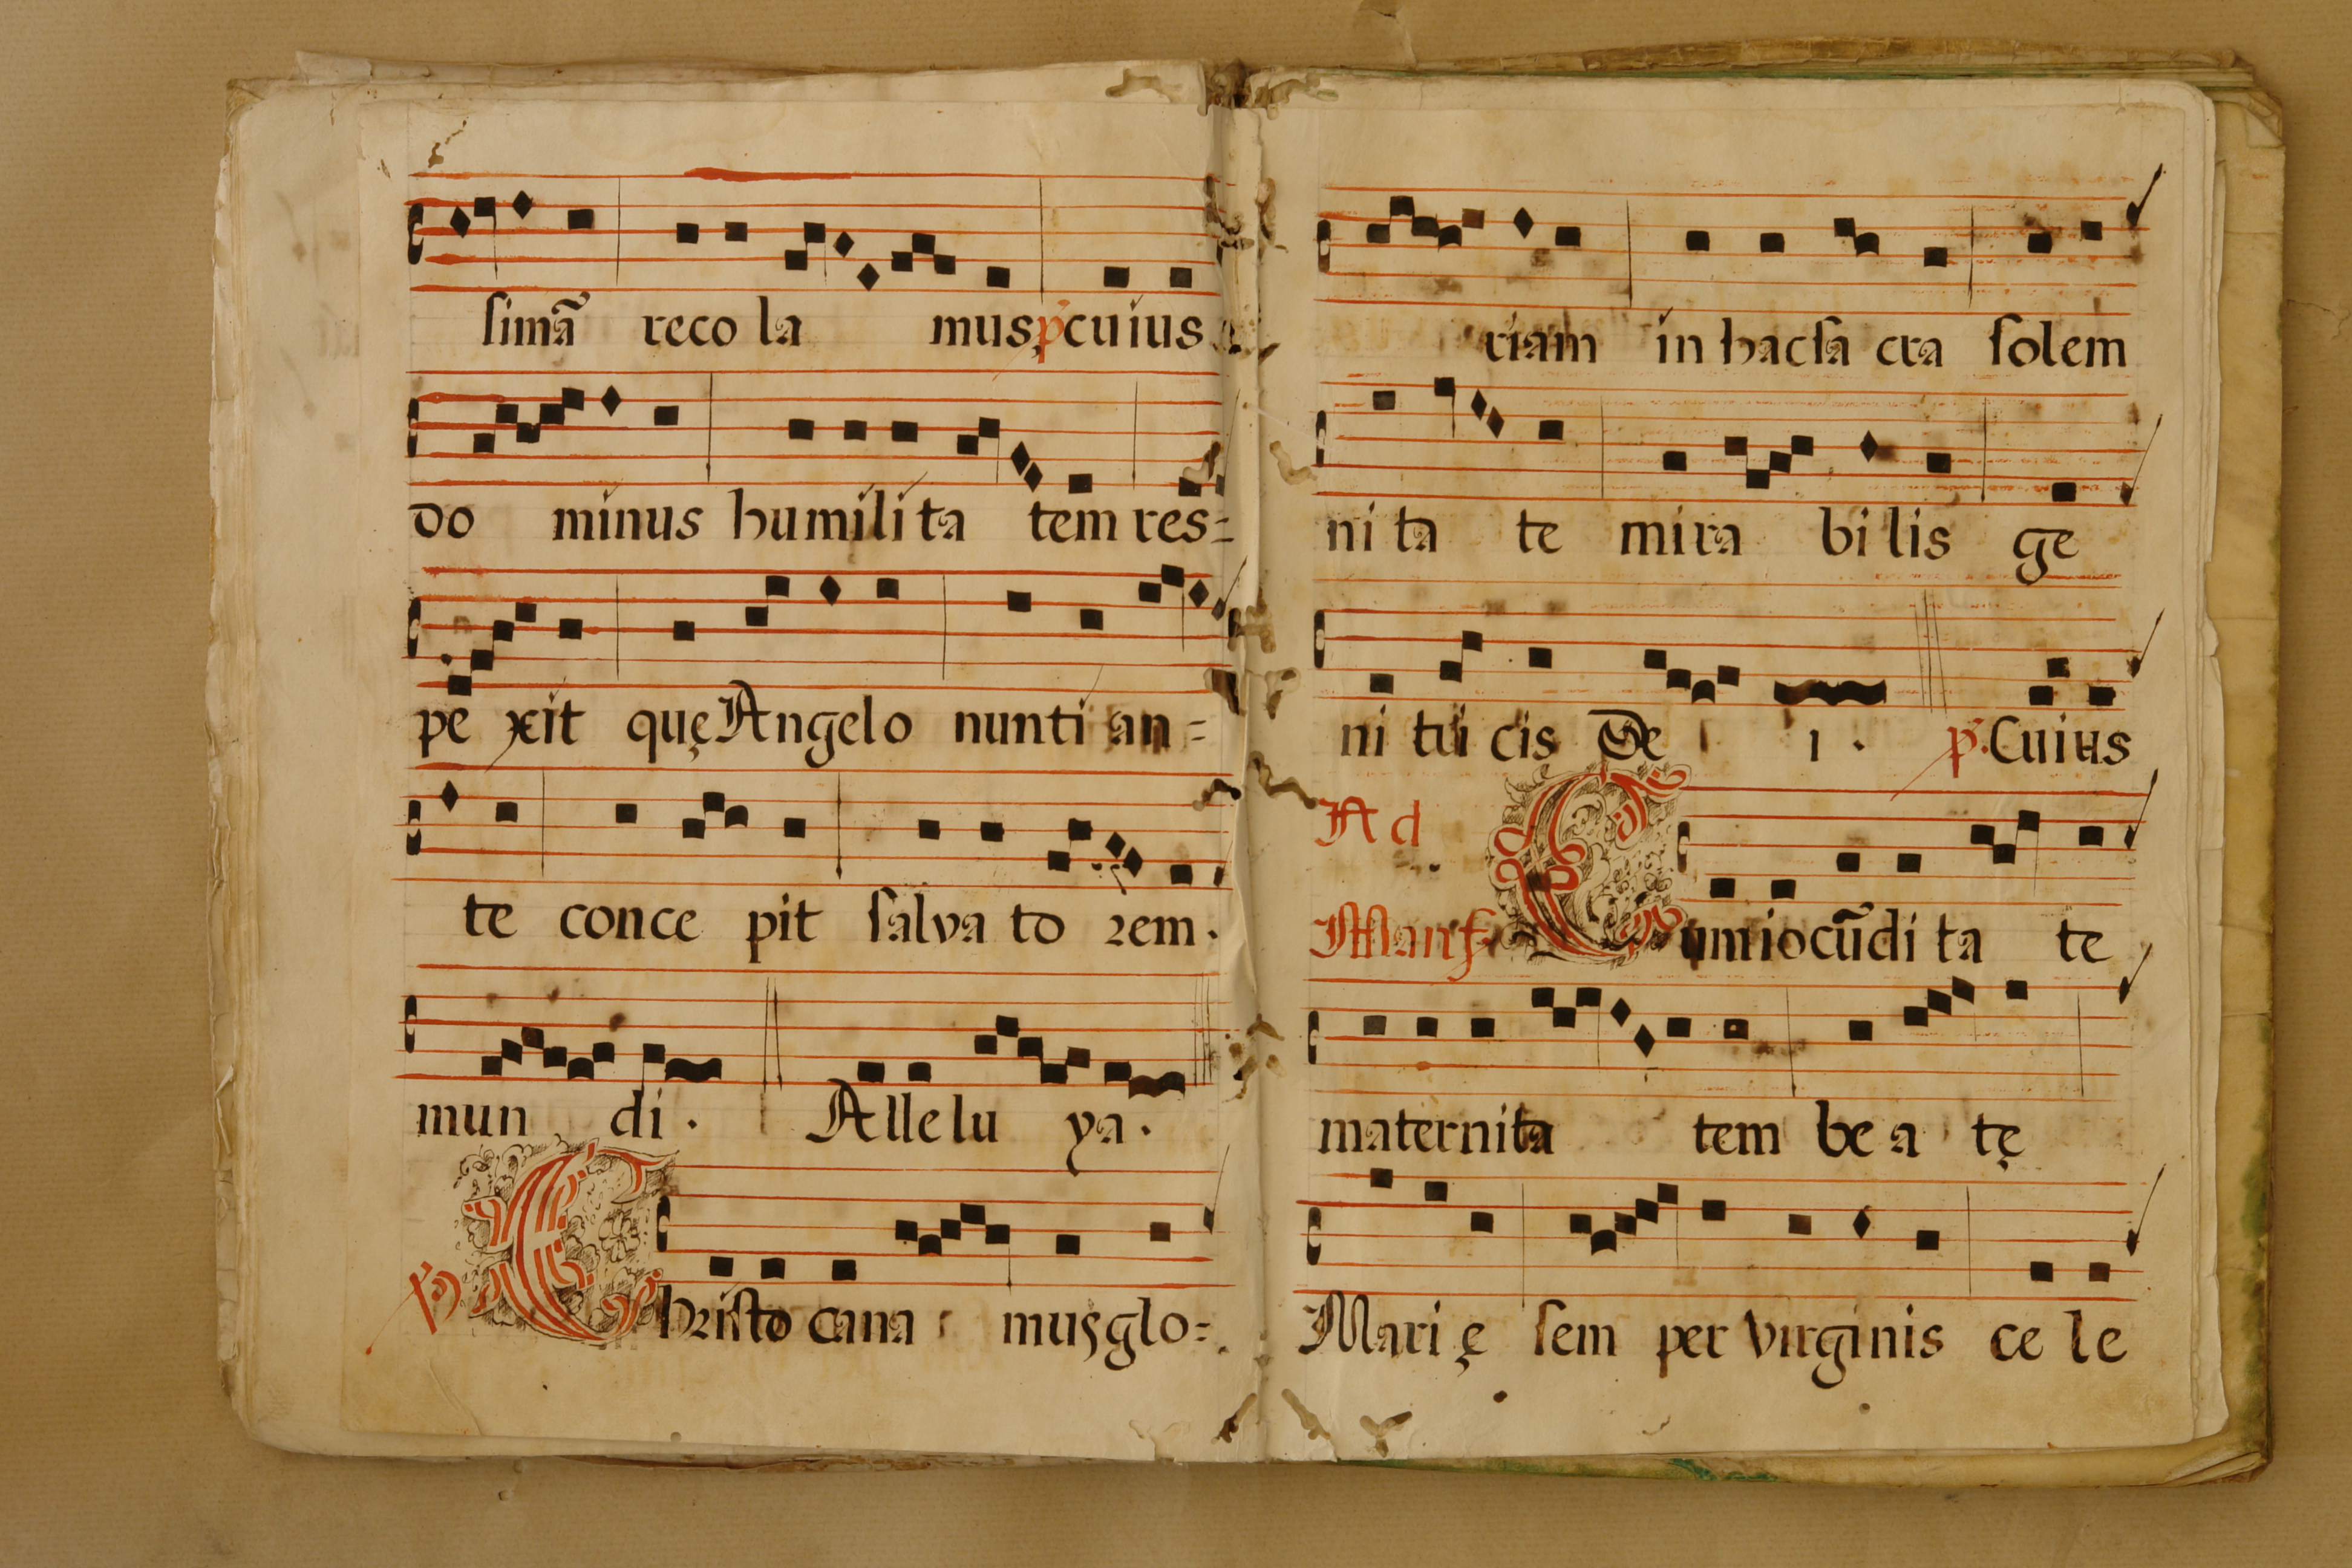 simã reco la mus p cuius
do minus humili ta tem res=
pe xit quę Angelo nunti an=
te conce pit salva to rem.
mun di. Allelu ya.
p Christo cana mus glo=
riam in hac sa cra solem
ni ta te mira bi lis ge
ni tri cis De i. p. Cuius
Ad
Magf. Cum iocũdi ta te
maternita tem be a tę
Mari ę sem per virginis ce le